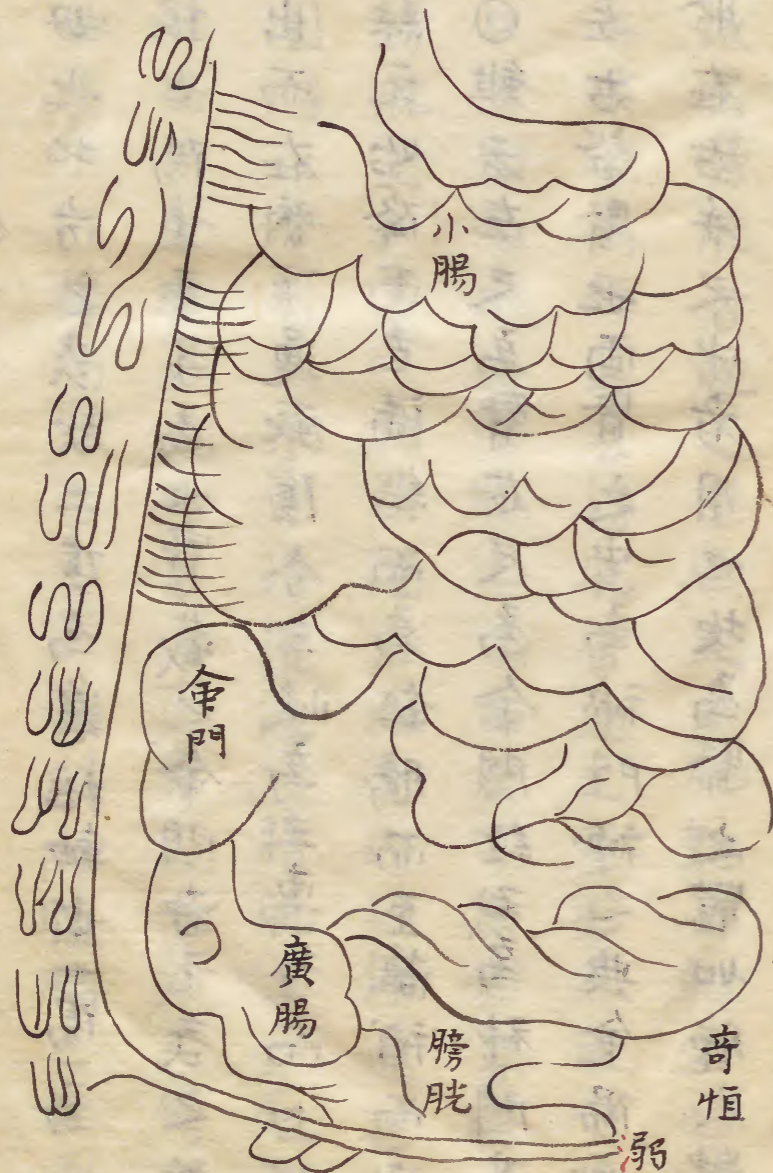 小腸
命門
廣腸
膀胱
奇恒
溺